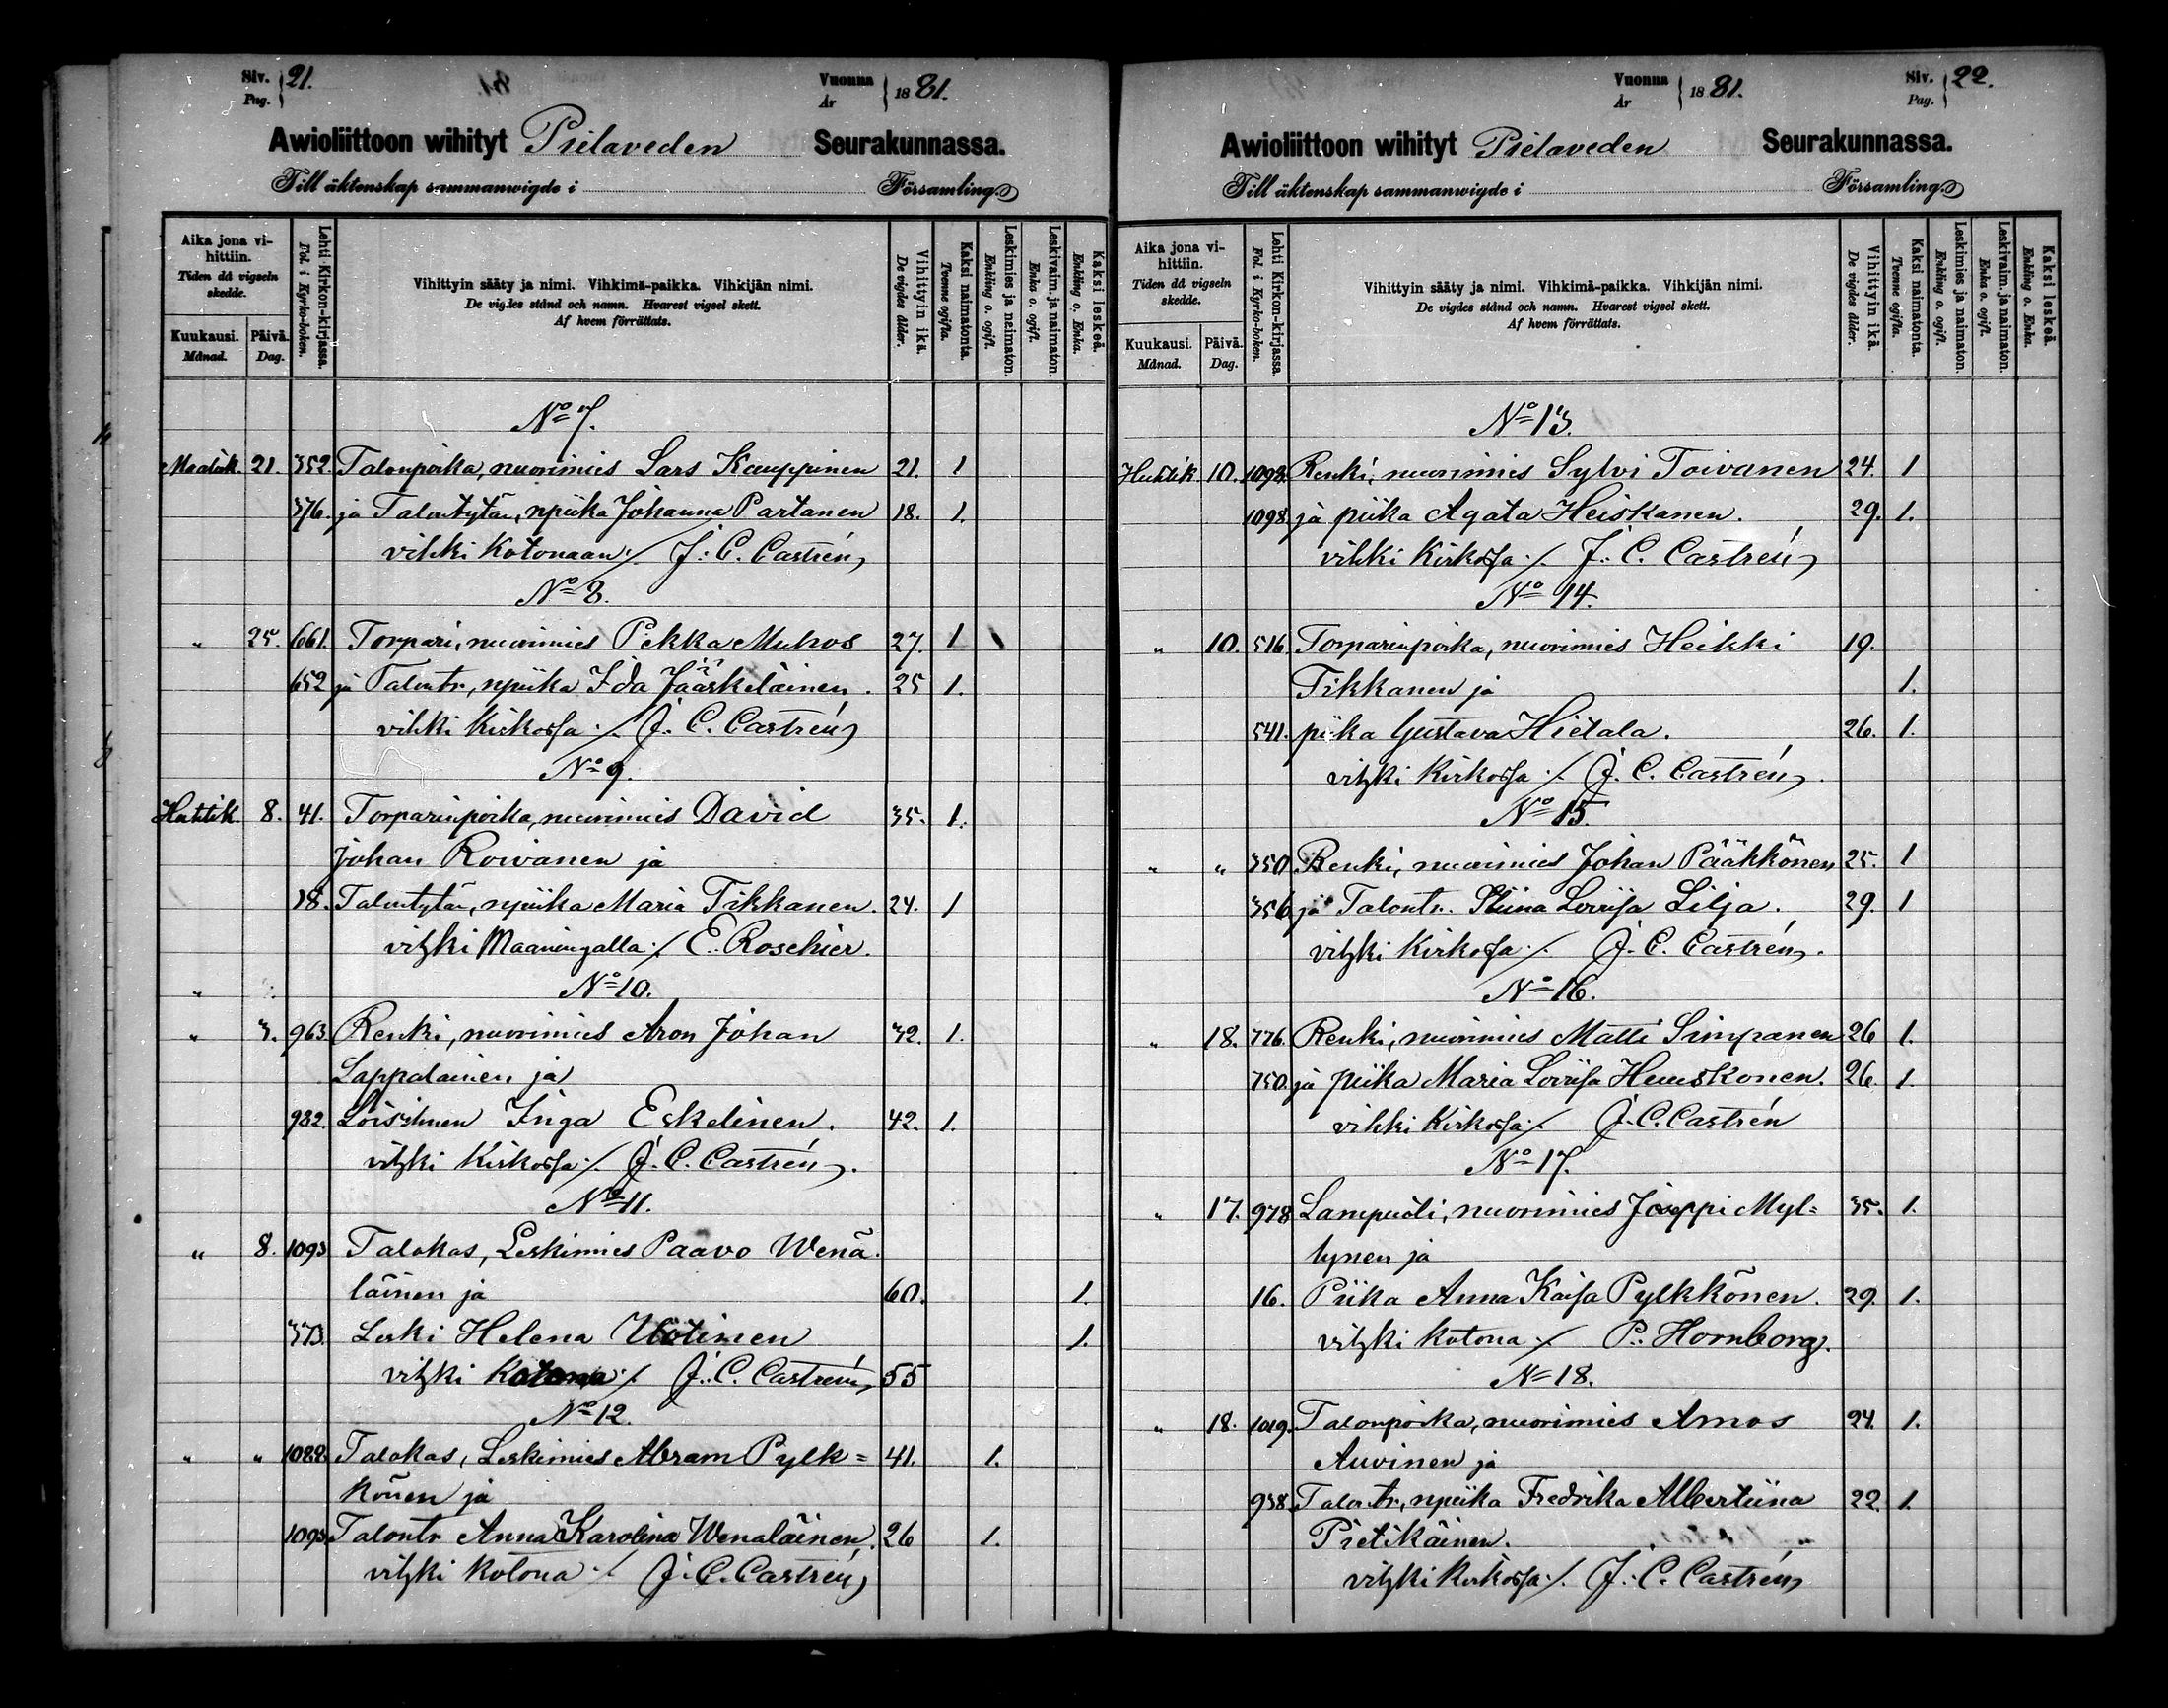 Siv. Pag. 21. Vuonna År 1881.
Awioliittoon wihityt Pielaveden Seurakunnassa.
Till äktenskap sammanwigde i Församling.
Aika jona vihittiin. Tiden då vigseln skedde.
Kuukausi. Månad. Päivä. Dag.
Lehti Kirkon-kirjassa. Fol. i Kyrko-boken.
Vihittyin sääty ja nimi. Vihkimä-paikka. Vihkijän nimi.
De vigdes stånd och namn. Hvarest vigsel skett.
Af hvem förrättats.
Vihittyin ikä. De vigdes ålder.
Kaksi naimatonta. Tvenne ogifta.
Leskimies ja neimaton. Enkling o. ogift.
Leskivaim. ja naimaton. Enka o. ogift.
Kaksi leskeä. Enkling o. Enka.
No 7.
Maalisk. 21. 352. Talonpoika, nuorimies Lars Kauppinen 21. 1
376. ja Talontytär, npiika Johanna Partanen 18. 1.
vihki Kotonaan ./. J. C. Castrén
No 8.
" 25. 661. Torpari, nuorimies Pekka Muhos 27. 1
652 ja Talontr, npiika Ida Jääskeläinen. 25 1.
vihki Kirkossa ./. J. C. Castrén
No 9.
Huhtik 8. 41. Torparinpoika, nuorimies David 35. 1.
Johan Roivanen ja
18. Talontytär, npiika Maria Tikkanen. 24. 1
vihki Maaningalla ./. E. Roschier.
No 10.
"
" 3. 963. Renki, nuorimies Aron Johan 32. 1.
Lappalainen ja
982. Loisihmen Inga Eskelinen. 42. 1.
vihki Kirkossa ./. J. C. Castrén.
No 11.
" 8. 1093 Talokas, Leskimies Paavo Wenä
läinen ja 60. 1.
373. Leski Helena Uotinen 1.
vihki Kotona ./. J. C. Castrén 55
No 12.
" " 1088. Talokas, Leskimies Abram Pylk= 41. 1.
könen ja
1093. Talontr Anna Karolina Wenäläinen. 26 1.
vihki kotona ./. J. C. Castrén
Siv. Pag. 22. Vuonna År 1881.
Awioliittoon wihityt Pielaveden Seurakunnassa.
Till äktenskap sammanwigde i Församling.
Aika jona vihittiin. Tiden då vigseln skedde.
Kuukausi. Månad. Päivä. Dag.
Lehti Kirkon-kirjassa. Fol. i Kyrko-boken.
Vihittyin sääty ja nimi. Vihkimä-paikka. Vihkijän nimi.
De vigdes stånd och namn. Hvarest vigsel skett.
Af hvem förrättats.
Vihittyin ikä. De vigdes ålder.
Kaksi naimatonta. Tvenne ogifta.
Leskimies ja naimaton. Enkling o. ogift.
Leskivaim. ja naimaton. Enka o. ogift.
Kaksi leskeä. Enkling o. Enka.
No 13.
Huhtik 10. 1098. Renki, nuorimies Sylvi Toivanen 24. 1
1098. ja piika Agata Heiskanen. 29. 1.
vihki Kirkossa ./. J. C. Castrén
No 14.
" 10. 516. Torparinpoika, nuorimies Heikki 19.
Tikkanen ja 1.
541. piika Gustava Hietala. 26. 1.
vihki Kirkossa ./. J. C. Castrén.
No 15.
" " 350 Renki, nuorimies Johan Pääkkönen 25. 1
356 ja Talontr. Stiina Loviisa Lilja. 29. 1
vihki Kirkossa ./. J. C. Castrén.
No 16.
" 18. 776. Renki, nuorimies Matti Simpanen 26 1.
750. ja piika Maria Loviisa Heuskonen. 26. 1.
vihki Kirkossa ./. J. C. Castrén
No 17.
" 17. 978 Lampuoti, nuorimies Joseppi Myl= 35. 1.
lynen ja
16. Piika Anna Kaisa Pylkkönen. 29. 1.
vihki kotona ./. P. Hornborg.
No 18.
" 18. 1019. Talonpoika, nuorimies Amos 24. 1.
Auvinen ja
938. Talontr, npiika Fredrika Albertiina 22. 1.
Pietikäinen.
vihki kirkossa ./. J. C. Castrén